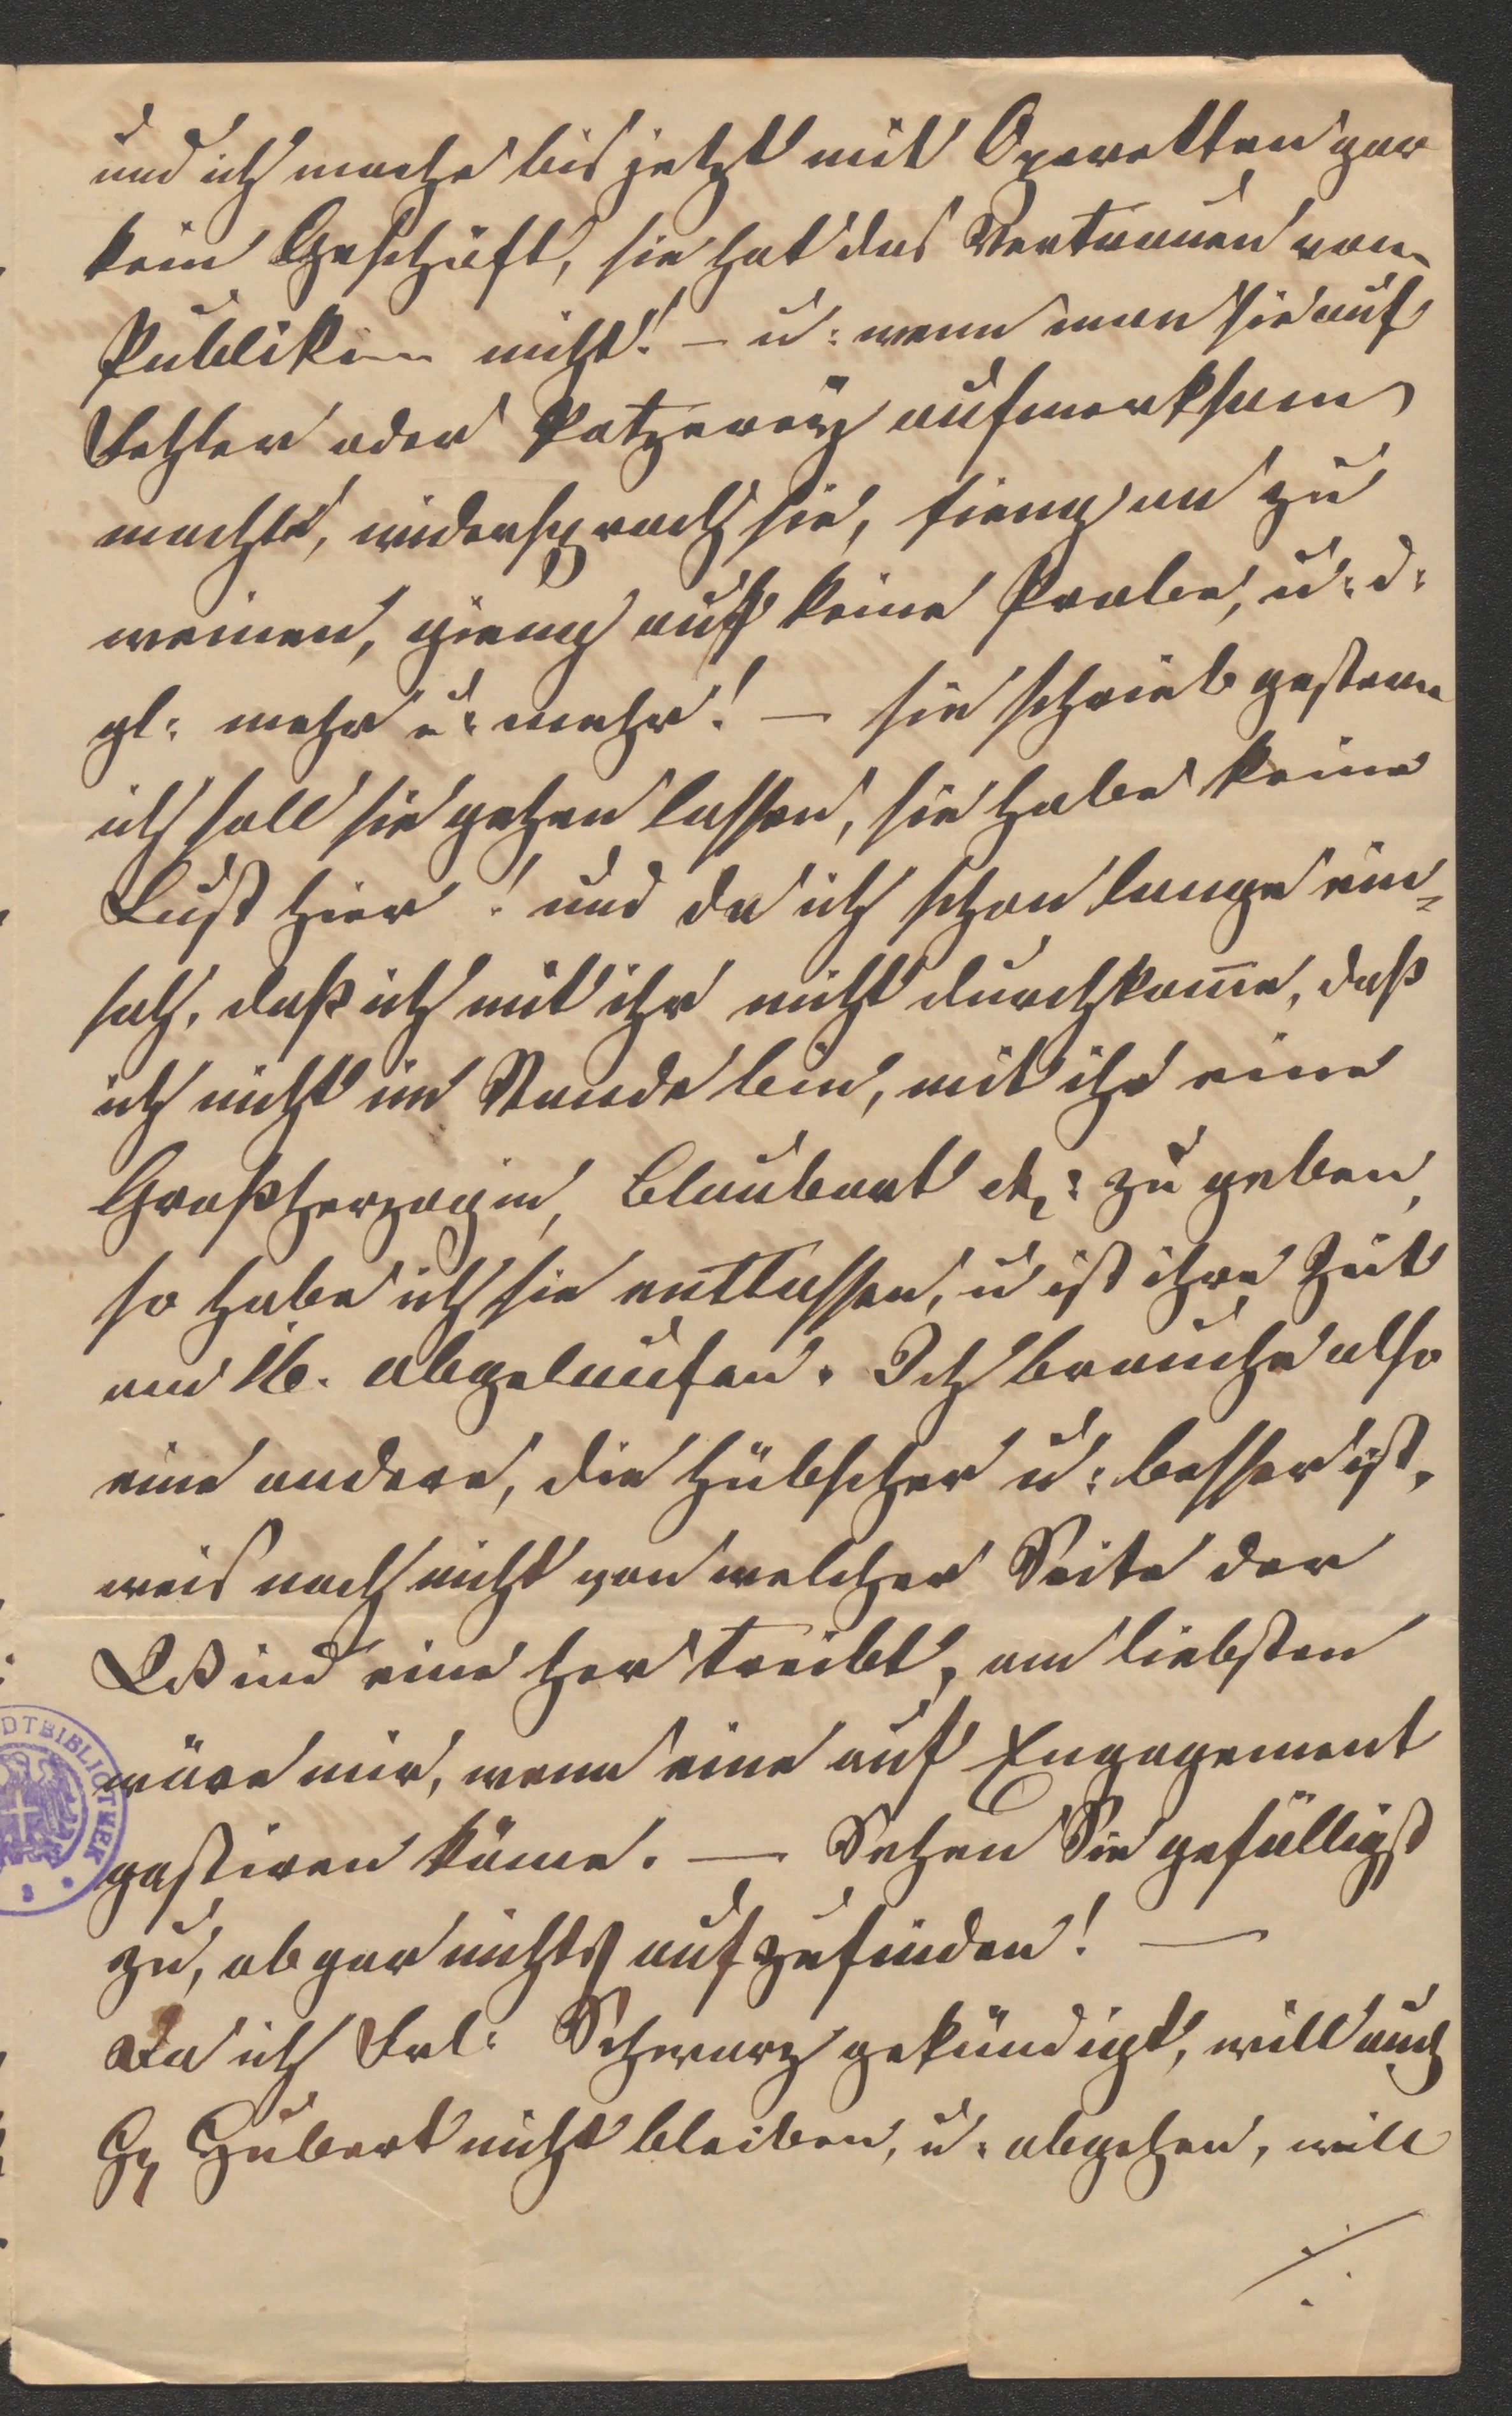 und ich mache bis jetzt mit Operetten gar
kein Geschäft, sie hat das Vertrauen vom
Publikum nicht! – u: wenn man sie auf
Fehler oder Patzerey aufmerksam
machte, widersprach sie, fieng an zu
weinen, gieng auf keine Probe, u: d:
gl: mehr u: mehr! — sie schrieb gestern
ich soll sie gehen lassen, sie habe keine
Lust hier! und da ich schon lange ein=
sah, daß ich mit ihr nicht durchkom̅e, daß
ich nicht im Stande bin, mit ihr eine
Großherzogin, Blaubart etc: zu geben,
so habe ich sie entlassen, u ist ihre Zeit
am 16. abgelaufen. Ich brauche also
eine andere, die hübscher u: besser ist,
weis noch nicht von welcher Seite der
Wind eine her treibt, am liebsten
wäre mir, wenn eine auf Engagement
gastiren käme. — Sehen Sie gefälligst
zu, ob gar nichts aufzufinden! —
Da ich Frl: Schwarz gekündigt, will auch
H Hubert nicht bleiben, u: abgehen, will
./.
DTBIBLIOTHEK